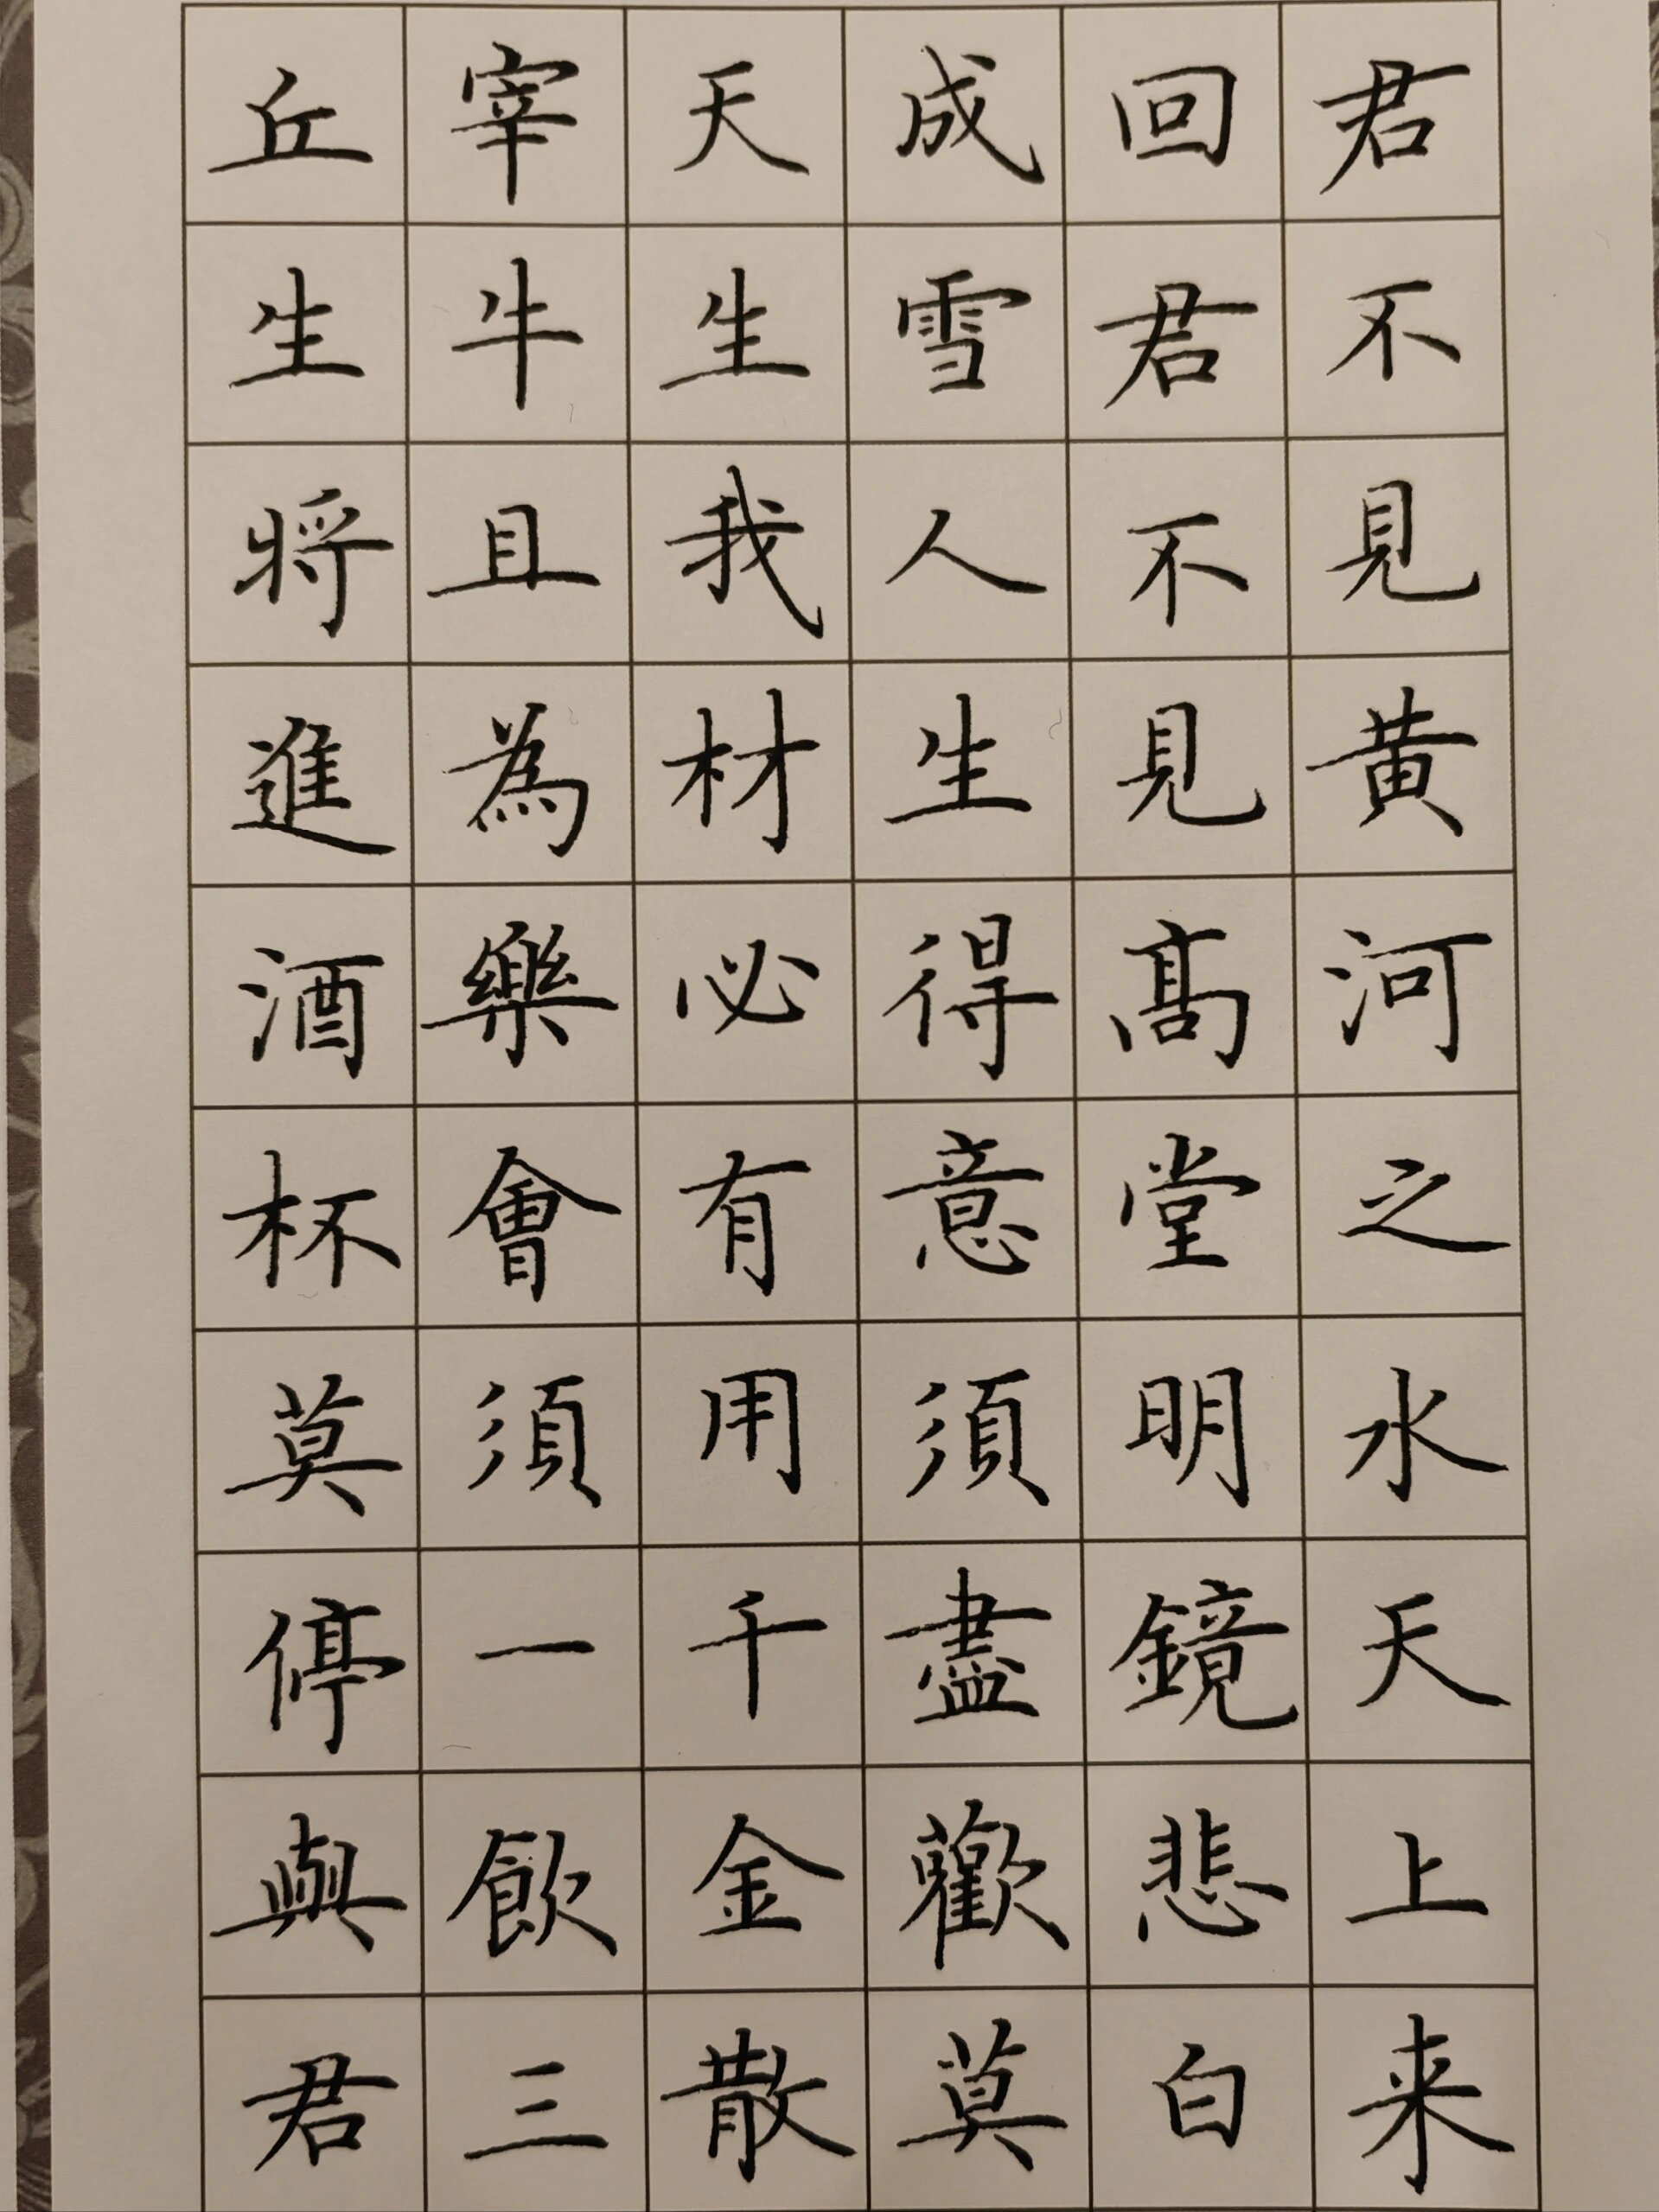 君不見黃河之水天上来
回君不見髙堂明鏡悲白
成雪人生得意須盡歡莫
天生我材必有用千金散
宰牛且為樂會須一飲三
丘生將進酒杯莫停與君